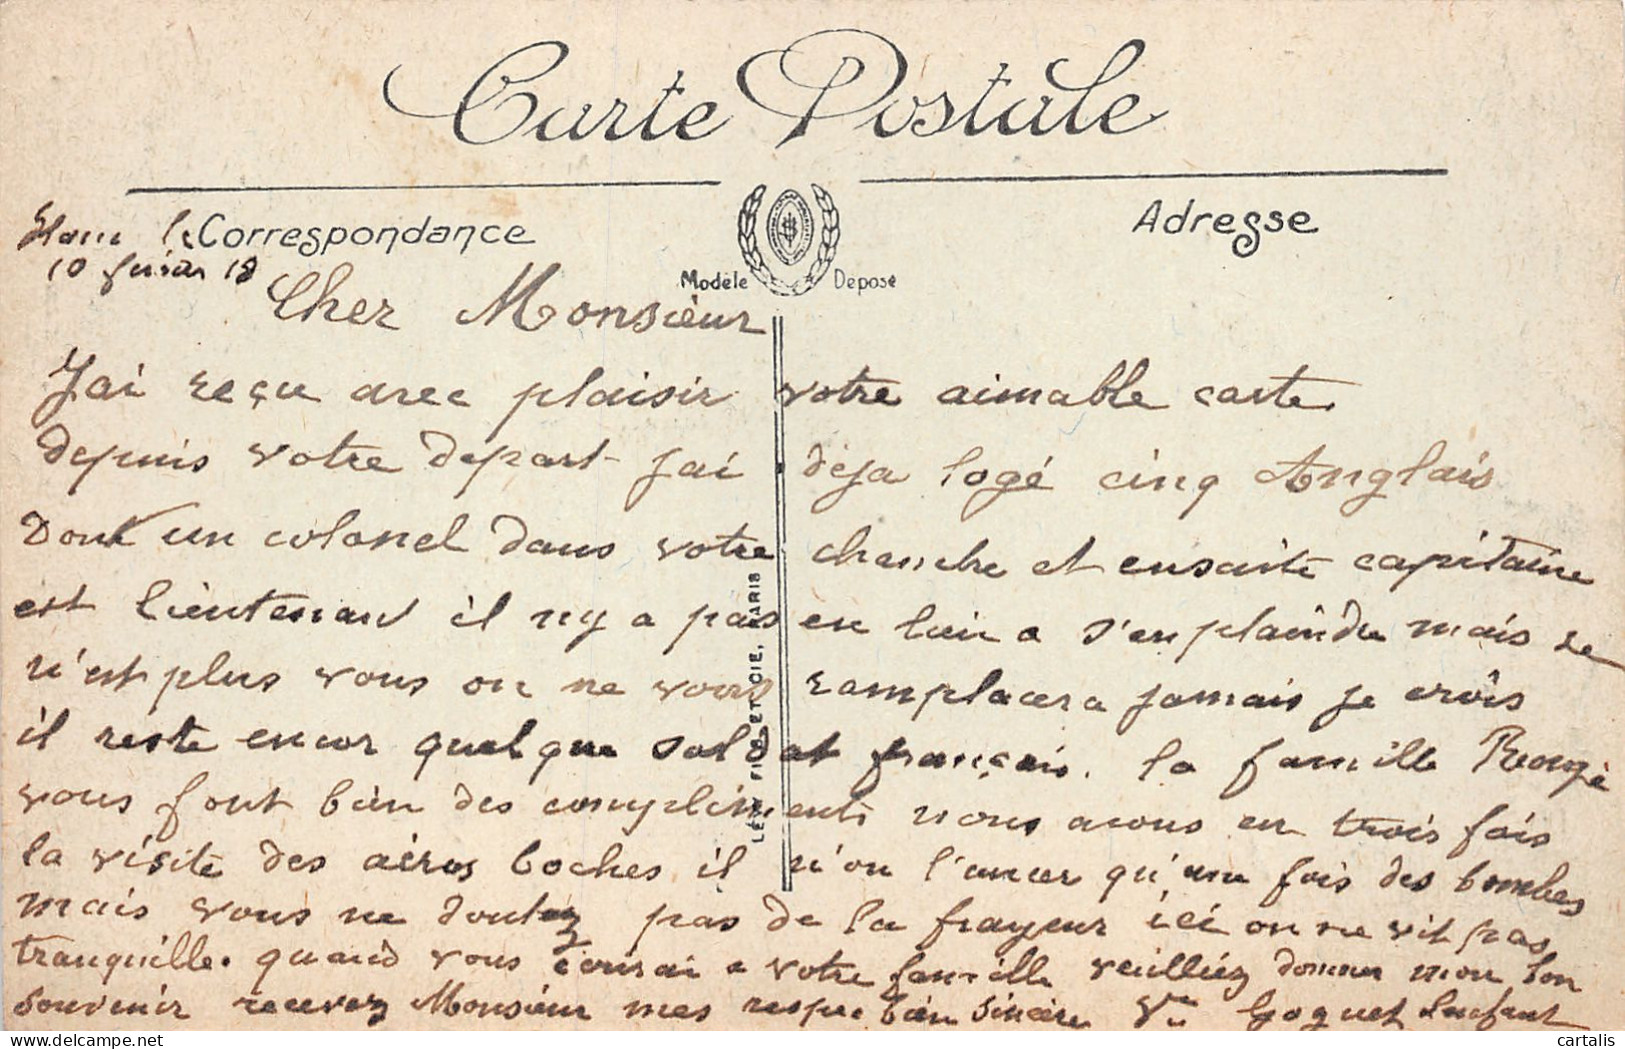 Carte Postale
Correspondance
Adresse
Modèle Déposé
LEVY FILS ET CIE, PARIS
le
10 février 18
Cher Monsieur
J'ai reçu avec plaisir votre aimable carte.
depuis votre depart j'ai deja logé cinq Anglais
Dont un colonel dans votre chambre et ensuite capitaine
est lieutenant il n'y a pas en lieu a s'en plaindre mais se
n'est plus vous on ne vous remplacera jamais je crois
il reste encor quelque soldat français. la famille
vous font bien des compliments nous avons eu trois fois
la visite des aéros boches il n'on l'ancer qu'une fois des bombes
mais vous ne doutez pas de la frayeur ici on ne vit pas
tranquille. quand vous a votre famille veuilliez donner mon bon
souvenir recevez Monsieur mes respec bien sincère Vve Goguet
cartalis